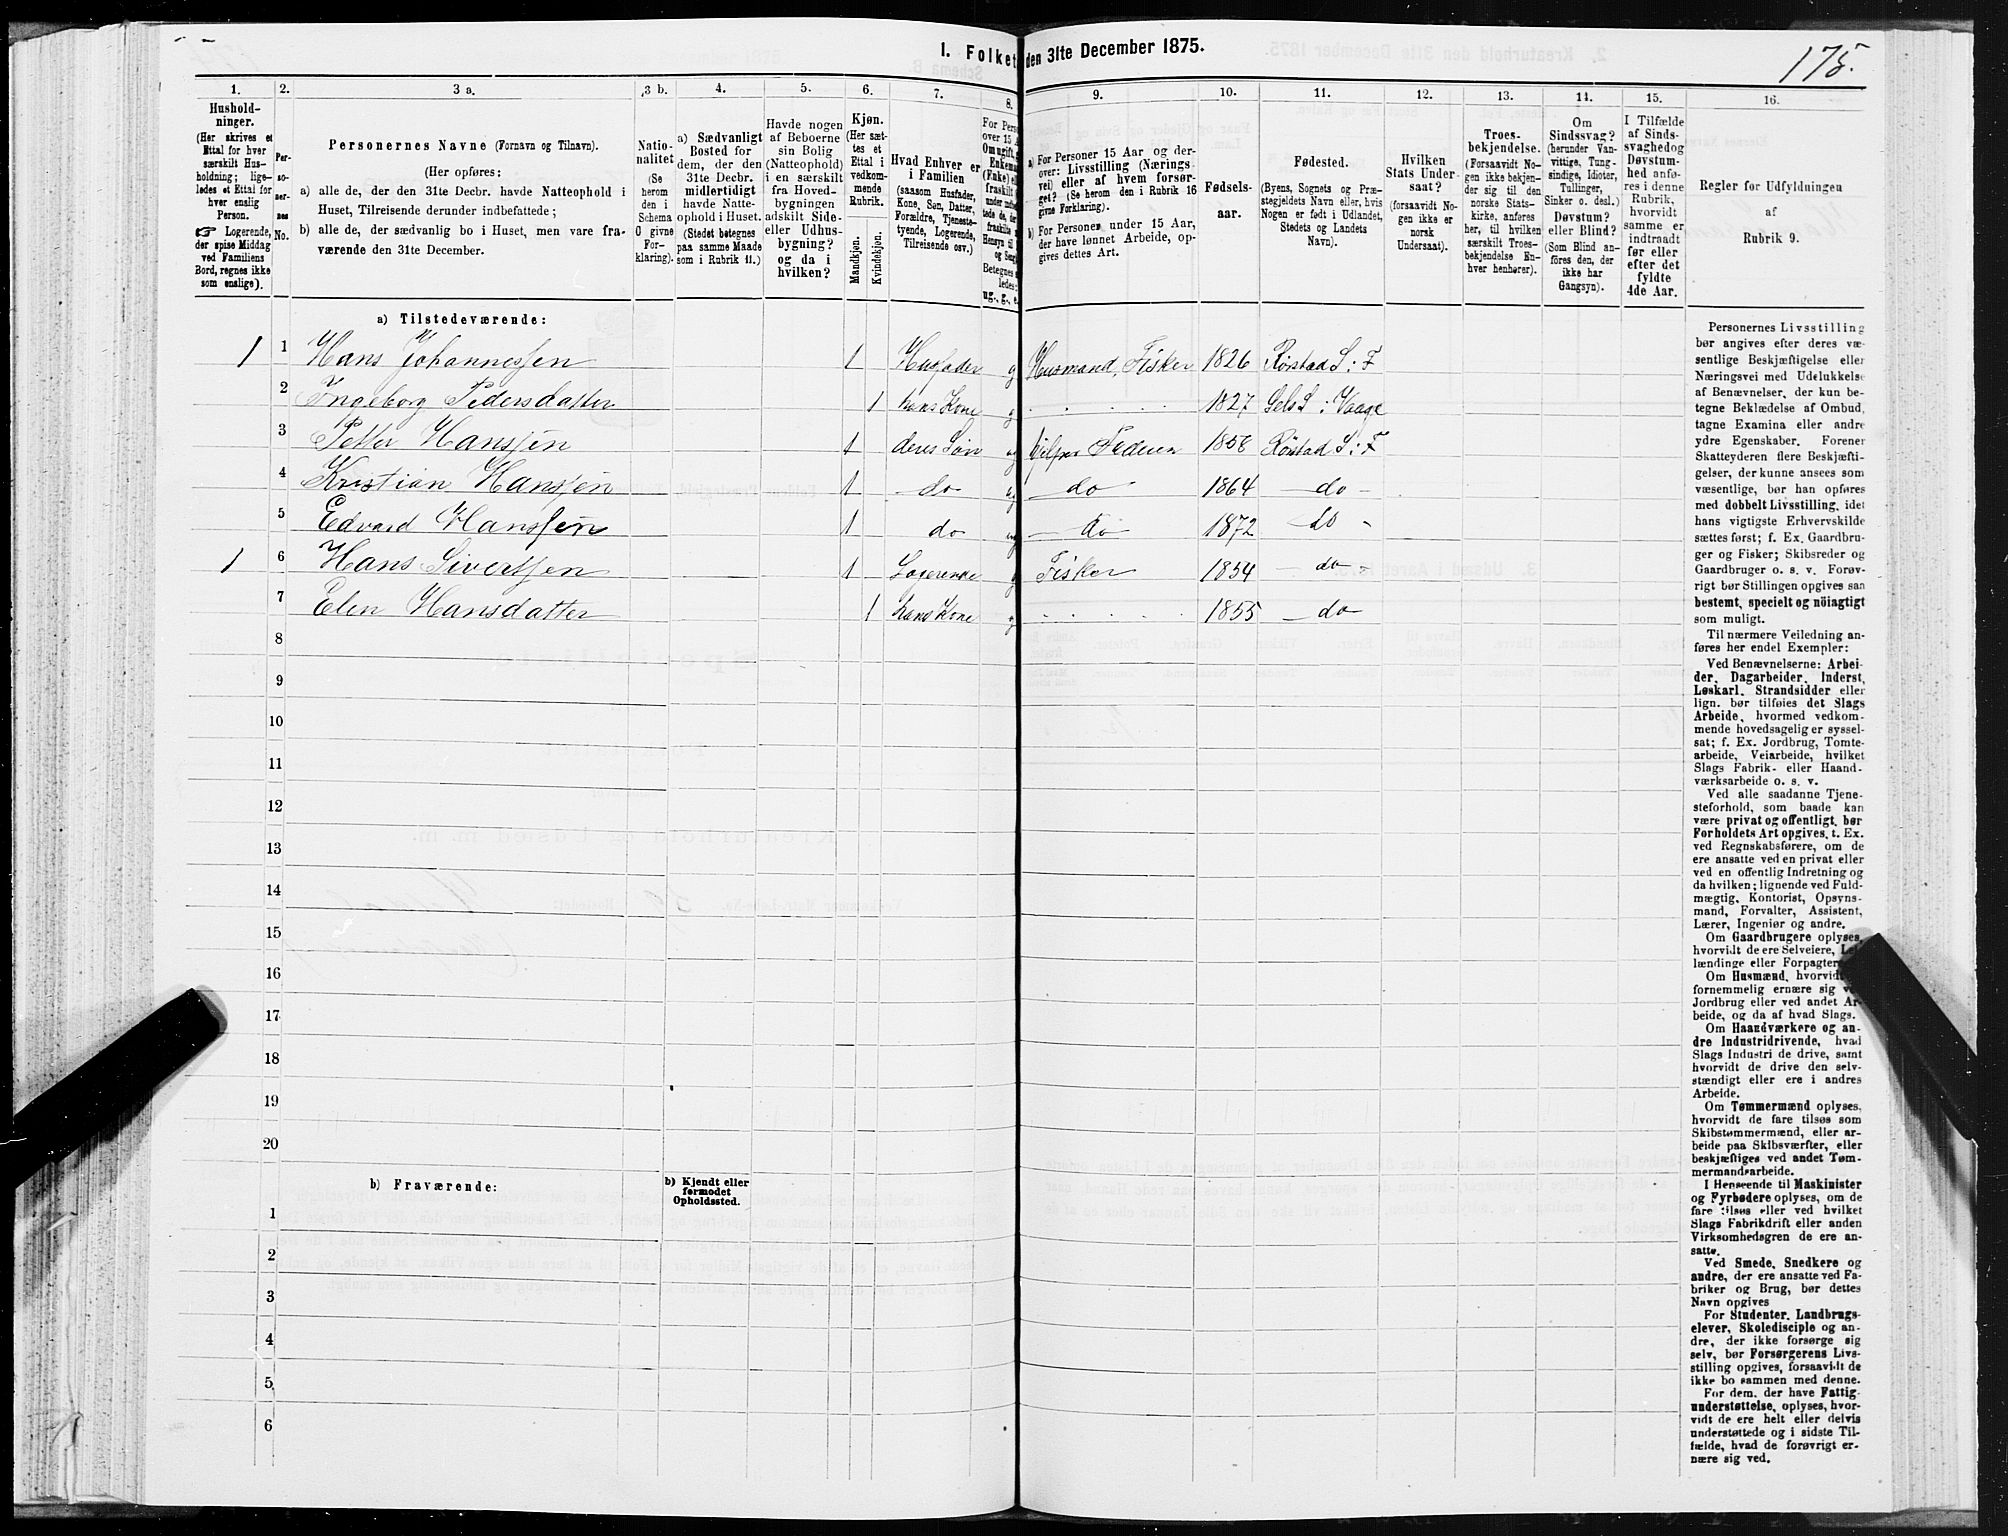 I. Folket den 31te December 1875.
175.
1. 2. 3 a. 3 b. 4. 5. 6. 7. 8. 9. 10. 11. 12. 13. 14. 15. 16.
Hushold-
ninger.
(Her skrives et
Ettal for hver
særskilt Hus-
holdning; lige-
ledes et Ettal for
hver enslig
Person.
☞ Logerende,
der spise Middag
ved Familiens
Bord, regnes ikke
som enslige).
Per-
so-
ner-
nes
No.
Personernes Navne (Fornavn og Tilnavn).
(Her opføres:
a) alle de, der den 31te Decbr. havde Natteophold i
Huset, Tilreisende derunder indbefattede;
b) alle de, der sædvanlig bo i Huset, men vare fra-
værende den 31te December.
Natio-
nalitet
(Se
herom
den i
Schema
O givne
For-
klaring).
a) Sædvanligt
Bosted for
dem, der den
31te Decbr.
midlertidigt
havde Natte-
ophold i Huset.
(Stedet betegnes
paa samme Maade
som i Rubrik 11.)
Havde nogen
af Beboerne
sin Bolig
(Natteophold)
i en særskilt
fra Hoved-
bygningen
adskilt Side-
eller Udhus-
bygning?
og da i
hvilken?
Kjøn.
(Her sæt-
tes et
Ettal i
vedkom-
mende
Rubrik.
Mandkjøn.
Kvindekjøn.
Hvad Enhver er
i Familien
(saasom Husfader,
Kone, Søn, Datter,
Forældre, Tjeneste-
tyende, Logerende,
Tilreisende osv.)
For Pers
over 15 A
Om ugift, g
Enkema
(Enke) el
fraskilt
Betegnes s
ledes:
ug., g., e.
a) For Personer 15 Aar og der-
over: Livsstilling (Nærings-
vei) eller af hvem forsør-
get? (Se herom den i Rubrik 16
givne Forklaring).
b) For Personer under 15 Aar,
der have lønnet Arbeide, op-
gives dettes Art.
Fødsels-
aar.
Fødested.
(Byens, Sognets og Præ-
stegjeldets Navn eller, hvis
Nogen er født i Udlandet,
Stedets og Landets
Navn).
Hvilken
Stats Under-
saat?
(forsaavidt No-
gen ikke er
norsk
Undersaat).
Troes-
bekjendelse.
(Forsaavidt No-
gen ikke bekjen-
der sig til den
norske Stats-
kirke, anføres
her, til hvilken
særskilt Troes-
bekjendelse En-
hver henhører).
Om
Sindssvag?
(herunder Van-
vittige, Tung-
sindige, Idioter,
Tullinger,
Sinker o. desl.)
Døvstum?
eller Blind?
(Som Blind an-
föres den, der
ikke har
Gangsyn).
I Tilfælde
af Sinds-
svaghed og
Døvstum-
hed anfø-
res i denne
Rubrik,
hvorvidt
samme er
indtraadt
før eller
efter det
fyldte
4de Aar.
Regler for Udfyldningen
af
Rubrik 9.
a) Tilstedeværende:
1 1 Hans Johannessen 1 Husfader g Husmand, Fisker 1826 Rörstad S: F
2 Ingeborg Pedersdatter 1 hans Kone g 1827 Gels S: Vaage
3 Petter Hanssen 1 deres Søn ug hjelper Faderen 1858 Rörstad S: F
4 Kristian Hanssen 1 do ug do 1864 do
5 Edvard Hanssen 1 do ug do 1872 do
1 6 Hans Sivertsen 1 Logerende g Fisker 1854 do
7 Elen Hansdatter 1 hans Kone g 1855 do
8
9
10
11
12
13
14
15
16
17
18
19
20
b) Fraværende:
b) Kjendt eller
formodet
Opholdssted.
1
2
3
4
5
6
Personernes Livsstilling
bør angives efter deres væ-
sentlige Beskjæftigelse eller
Næringsvei med Udelukkelse
af Benævnelser, der kun be-
tegne Beklædelse af Ombud,
tagne Examina eller andre
ydre Egenskaber. Forener
Skatteyderen flere Beskjæfti-
gelser, der kunne ansees som
væsentlige, bør han opføres
med dobbelt Livsstilling, idet
hans vigtigste Erhvervskilde
sættes først; f. Ex. Gaardbru-
ger og Fisker; Skibsreder og
Gaardbruger o. s. v. Forøv-
rigt bør Stillingen opgives saa
bestemt, specielt og nöiagtigt
som muligt.
Til nærmere Veiledning an-
føres her endel Exempler:
Ved Benævnelserne: Arbei-
der, Dagarbeider, Inderst,
Løskarl, Strandsidder eller
lign. bør tilføies det Slags
Arbeide, hvormed vedkom-
mende hovedsagelig er syssel-
sat; f. Ex. Jordbrug, Tomte-
arbeide, Veiarbeide, hvilket
Slags Fabrik- eller Haand-
værksarbeide o. s. v.
Ved alle saadanne Tjene-
steforhold, som baade kan
være privat og offentligt, bør
Forholdets Art opgives, t. Ex.
ved Regnskabsførere, om de
ere ansatte ved en privat eller
ved en offentlig Indretning og
da hvilken; lignende ved Fuld-
mægtig, Kontorist, Opsyns-
mand, Forvalter, Assistent,
Lærer, Ingeniør og andre.
Om Gaardbrugere oplyses,
hvorvidt de ere Selveiere, Lei-
lændinge eller Forpagtere.
Om Husmænd, hvorvidt
fornemmelig ernære sig ved
Jordbrug eller ved andet Ar-
beide, og da af hvad Slags.
Om Haandværkere og an-
dre Industridrivende, hvad
Slags Industri de drive, samt
hvorvidt de drive den selv-
stændigt eller ere i andres
Arbeide.
Om Tømmermænd oplyses,
hvorvidt de fare tilsøs som
Skibstømmermænd, eller ar-
beide paa Skibsværfter, eller
beskjæftiges ved andet Tøm-
mermandsarbeide.
I Henseende til Maskinister
og Fyrbødere oplyses, om de
fare tilsøs eller ved hvilket
Slags Fabrikdrift eller anden
Virksomhedsgren de ere an-
satte.
Ved Smede, Snedkere og
andre, der ere ansatte ved Fa-
briker og Brug, bør dettes
Navn opgives
For Studenter, Landbrugs-
elever, Skoledisciple og an-
dre, der ikke forsørge sig
selv, bør Forsørgerens Livs-
stilling opgives, forsaavidt de
ikke bo sammen med denne.
For dem, der have Fattig-
understøttelse, oplyses, hvor-
vidt de ere helt eller delvis
understøttede og i sidste Til-
fælde, hvad de forøvrigt er-
nære sig ved.